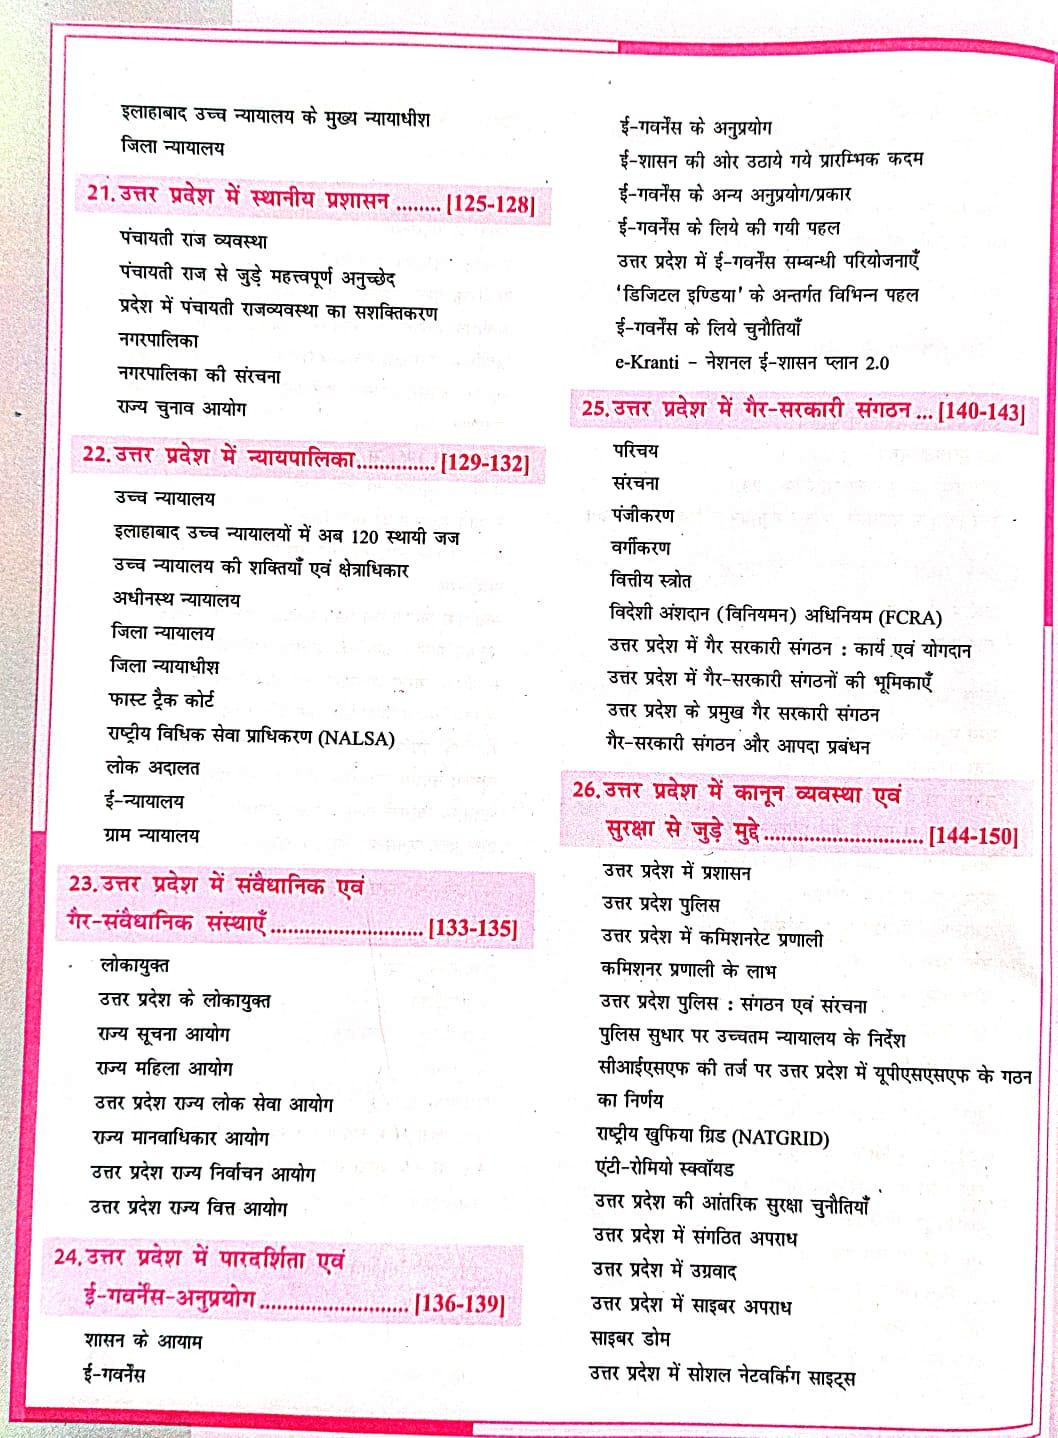 इलाहाबाद उच्च न्यायालय के मुख्य न्यायाधीश
जिला न्यायालय
21. उत्तर प्रदेश में स्थानीय प्रशासन ........ [125-128]
पंचायती राज व्यवस्था
पंचायती राज से जुड़े महत्त्वपूर्ण अनुच्छेद
प्रदेश में पंचायती राजव्यवस्था का सशक्तिकरण
नगरपालिका
नगरपालिका की संरचना
राज्य चुनाव आयोग
22. उत्तर प्रदेश में न्यायपालिका.............. [129-132]
उच्च न्यायालय
इलाहाबाद उच्च न्यायालयों में अब 120 स्थायी जज
उच्च न्यायालय की शक्तियाँ एवं क्षेत्राधिकार
अधीनस्थ न्यायालय
जिला न्यायालय
जिला न्यायाधीश
फास्ट ट्रैक कोर्ट
राष्ट्रीय विधिक सेवा प्राधिकरण (NALSA)
लोक अदालत
ई-न्यायालय
ग्राम न्यायालय
23. उत्तर प्रदेश में संवैधानिक एवं
गैर-संवैधानिक संस्थाएँ ........................... [133-135]
लोकायुक्त
उत्तर प्रदेश के लोकायुक्त
राज्य सूचना आयोग
राज्य महिला आयोग
उत्तर प्रदेश राज्य लोक सेवा आयोग
राज्य मानवाधिकार आयोग
उत्तर प्रदेश राज्य निर्वाचन आयोग
उत्तर प्रदेश राज्य वित्त आयोग
24. उत्तर प्रदेश में पारदर्शिता एवं
ई-गवर्नेंस-अनुप्रयोग .......................... [136-139]
शासन के आयाम
ई-गवर्नेंस
ई-गवर्नेंस के अनुप्रयोग
ई-शासन की ओर उठाये गये प्रारम्भिक कदम
ई-गवर्नेंस के अन्य अनुप्रयोग/प्रकार
ई-गवर्नेंस के लिये की गयी पहल
उत्तर प्रदेश में ई-गवर्नेंस सम्बन्धी परियोजनाएँ
'डिजिटल इण्डिया' के अन्तर्गत विभिन्न पहल
ई-गवर्नेंस के लिये चुनौतियाँ
e-Kranti - नेशनल ई-शासन प्लान 2.0
25. उत्तर प्रदेश में गैर-सरकारी संगठन ... [140-143]
परिचय
संरचना
पंजीकरण
वर्गीकरण
वित्तीय स्त्रोत
विदेशी अंशदान (विनियमन) अधिनियम (FCRA)
उत्तर प्रदेश में गैर सरकारी संगठन : कार्य एवं योगदान
उत्तर प्रदेश में गैर-सरकारी संगठनों की भूमिकाएँ
उत्तर प्रदेश के प्रमुख गैर सरकारी संगठन
गैर-सरकारी संगठन और आपदा प्रबंधन
26. उत्तर प्रदेश में कानून व्यवस्था एवं
सुरक्षा से जुड़े मुद्दे ............................ [144-150]
उत्तर प्रदेश में प्रशासन
उत्तर प्रदेश पुलिस
उत्तर प्रदेश में कमिशनरेट प्रणाली
कमिशनर प्रणाली के लाभ
उत्तर प्रदेश पुलिस : संगठन एवं संरचना
पुलिस सुधार पर उच्चतम न्यायालय के निर्देश
सीआईएसएफ की तर्ज पर उत्तर प्रदेश में यूपीएसएसएफ के गठन
का निर्णय
राष्ट्रीय खुफिया ग्रिड (NATGRID)
एंटी-रोमियो स्क्वॉयड
उत्तर प्रदेश की आंतरिक सुरक्षा चुनौतियाँ
उत्तर प्रदेश में संगठित अपराध
उत्तर प्रदेश में उग्रवाद
उत्तर प्रदेश में साइबर अपराध
साइबर डोम
उत्तर प्रदेश में सोशल नेटवर्किंग साइट्स